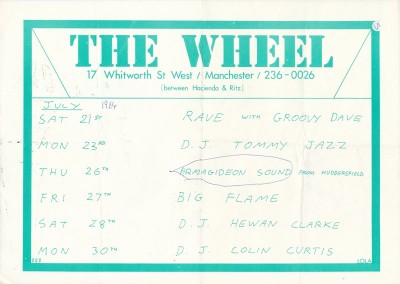 THE WHEEL
17 Whitworth St West / Manchester / 236-0026
(between Hacienda & Ritz)
JULY 1984
SAT 21ST RAVE WITH GROOVY DAVE
MON 23RD D.J. TOMMY JAZZ
THU 26TH ARMAGIDEON SOUND FROM HUDDERSFIELD
FRI 27TH BIG FLAME
SAT 28TH D.J. HEWAN CLARKE
MON 30TH D.J. COLIN CURTIS
LOLA